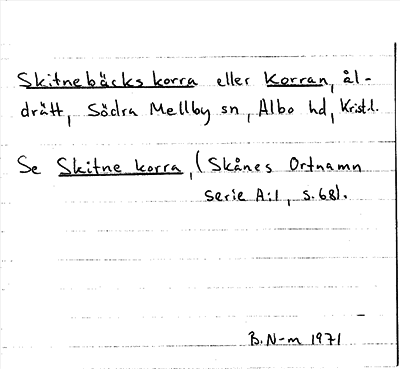 Skitnebäcks korra eller Korran, ål-
drätt, Södra Mellby sn, Albo hd, Krist.l.
Se Skitne korra, (Skånes Ortnamn
serie A:1, s. 68).
B. N-m 1971